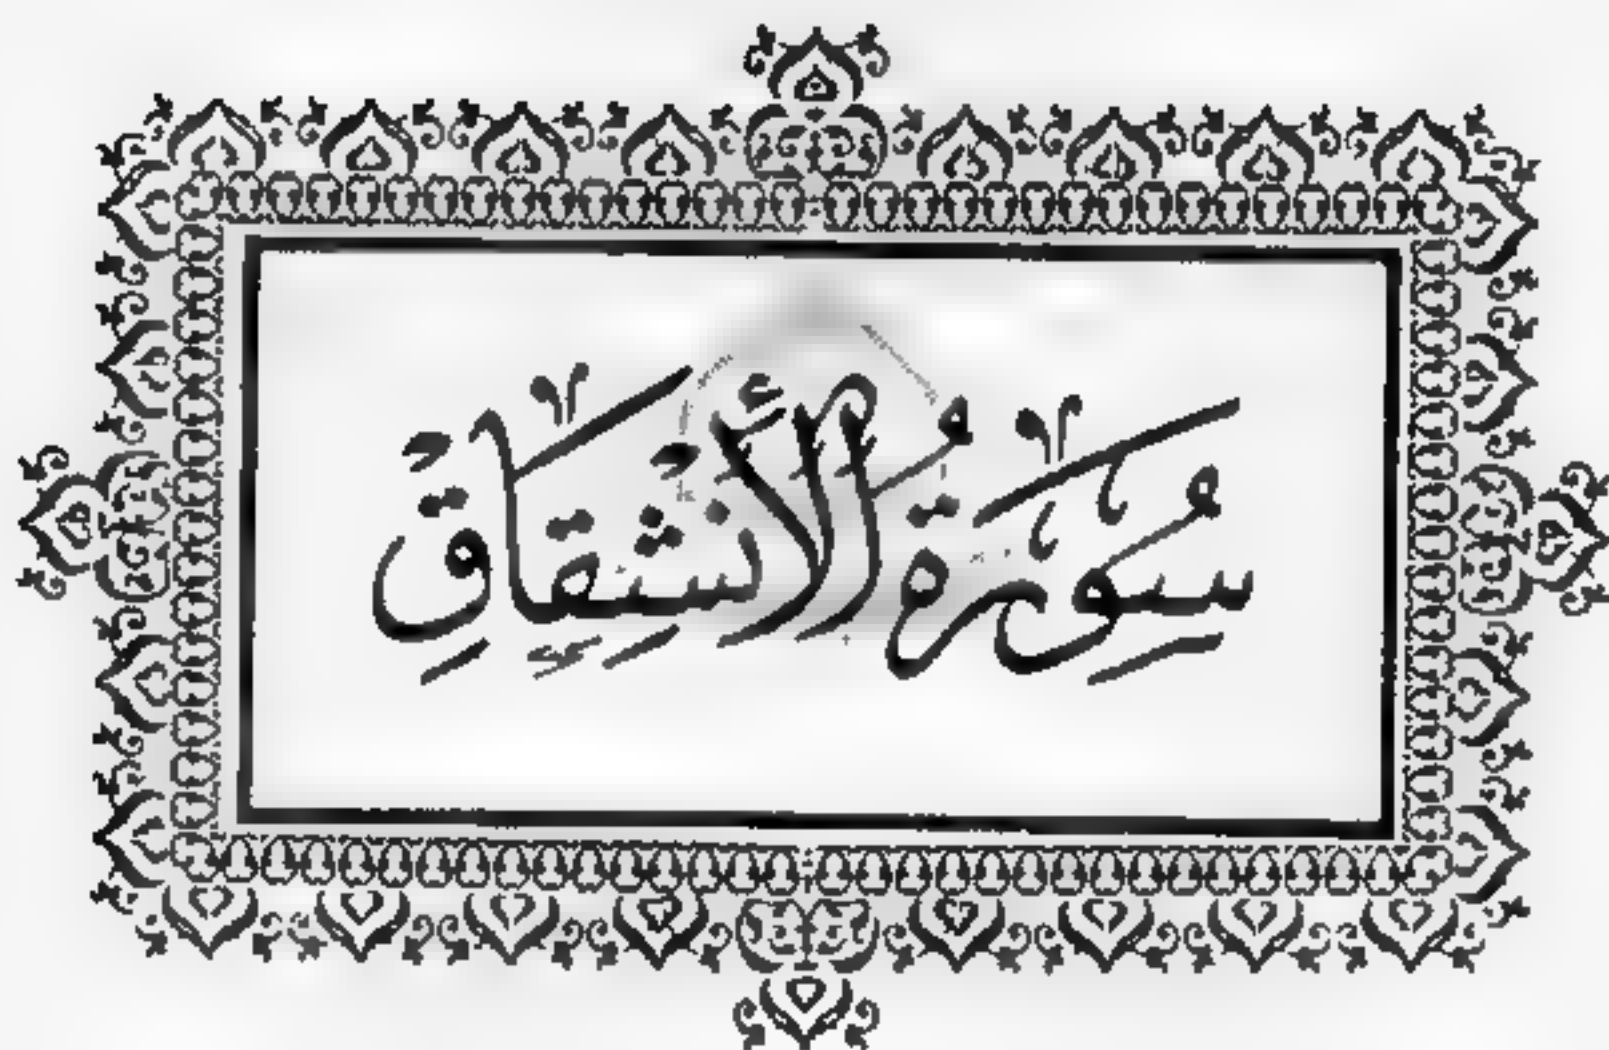 سُورَةُ الْأَنْشِقَاقِ